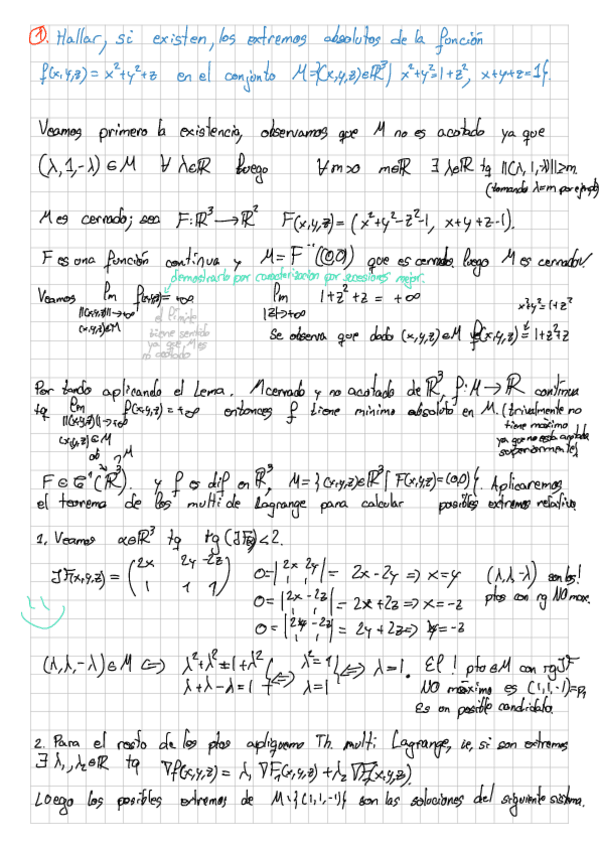 ①. Hallar, si existen, los extremos absolutos de la función
f(x,y,z) = x²+y²+z en el conjunto M={(x,y,z)∈ℝ³| x²+y²=1+z², x+y+z=1}.
Veamos primero la existencia, observamos que M no es acotado ya que
(λ,1,-λ)∈M ∀ λ∈ℝ luego ∀m>0 m∈ℝ ∃ λ∈ℝ tq ||(λ,1,-λ)||≥m.
(tomando λ=m por ejemplo)
M es cerrado; sea F:ℝ³→ℝ² F(x,y,z) = (x²+y²-z²-1, x+y+z-1).
F es una función continua y M=F⁻¹((0,0)) que es cerrado. luego M es cerrado//
demostrarlo por caracterización por sucesiones mejor.
Veamos lim f(x,y,z) = +∞ lim 1+z²+z = +∞ x²+y²=1+z²
||(x,y,z)||→+∞ |z|→+∞
(x,y,z)∈M
el límite
tiene sentido
ya que M es
no acotado
Se observa que dado (x,y,z)∈M f(x,y,z) = 1+z²+z
Por tando aplicando el Lema. M cerrado y no acotado de ℝ³, f:M→ℝ continua
tq lim f(x,y,z)=+∞ entonces f tiene mínimo absoluto en M. (trivialmente no
||(x,y,z)||→+∞ tiene máximo
(x,y,z)∈M ya que no esta acotada
superiormente)
F∈C¹(ℝ³). y f es dif en ℝ³, M={(x,y,z)∈ℝ³| F(x,y,z)=(0,0)}. Aplicaremos
el teorema de los multi de Lagrange para calcular posibles extremos relativos
1, Veamos α∈ℝ³ tq rg(JF(α))<2.
JF(x,y,z) = (2x 2y -2z 0=|2x 2y| = 2x-2y ⇒ x=y (λ,λ,-λ) son los!
1 1 1) |1 1| ptos con rg NO max.
0=|2x -2z| = 2x+2z ⇒ x=-z
|1 1|
0=|2y -2z| = 2y+2z ⇒ y=-z
|1 1|
(λ,λ,-λ)∈M ⇔ λ²+λ²=1+λ² ⇔ λ²=1 ⇔ λ=1. El ! pto∈M con rgJF
λ+λ-λ=1 λ=1 NO máximo es (1,1,-1)=p₁
Es un posible candidato.
2. Para el resto de los ptos apliquemo Th. multi Lagrange, ie, si son extremos
∃ λ₁,λ₂∈ℝ tq ∇f(x,y,z) = λ₁ ∇F₁(x,y,z) + λ₂ ∇F₂(x,y,z).
Luego los posibles extremos de M\{(1,1,-1)} son las soluciones del siguiente sistema.